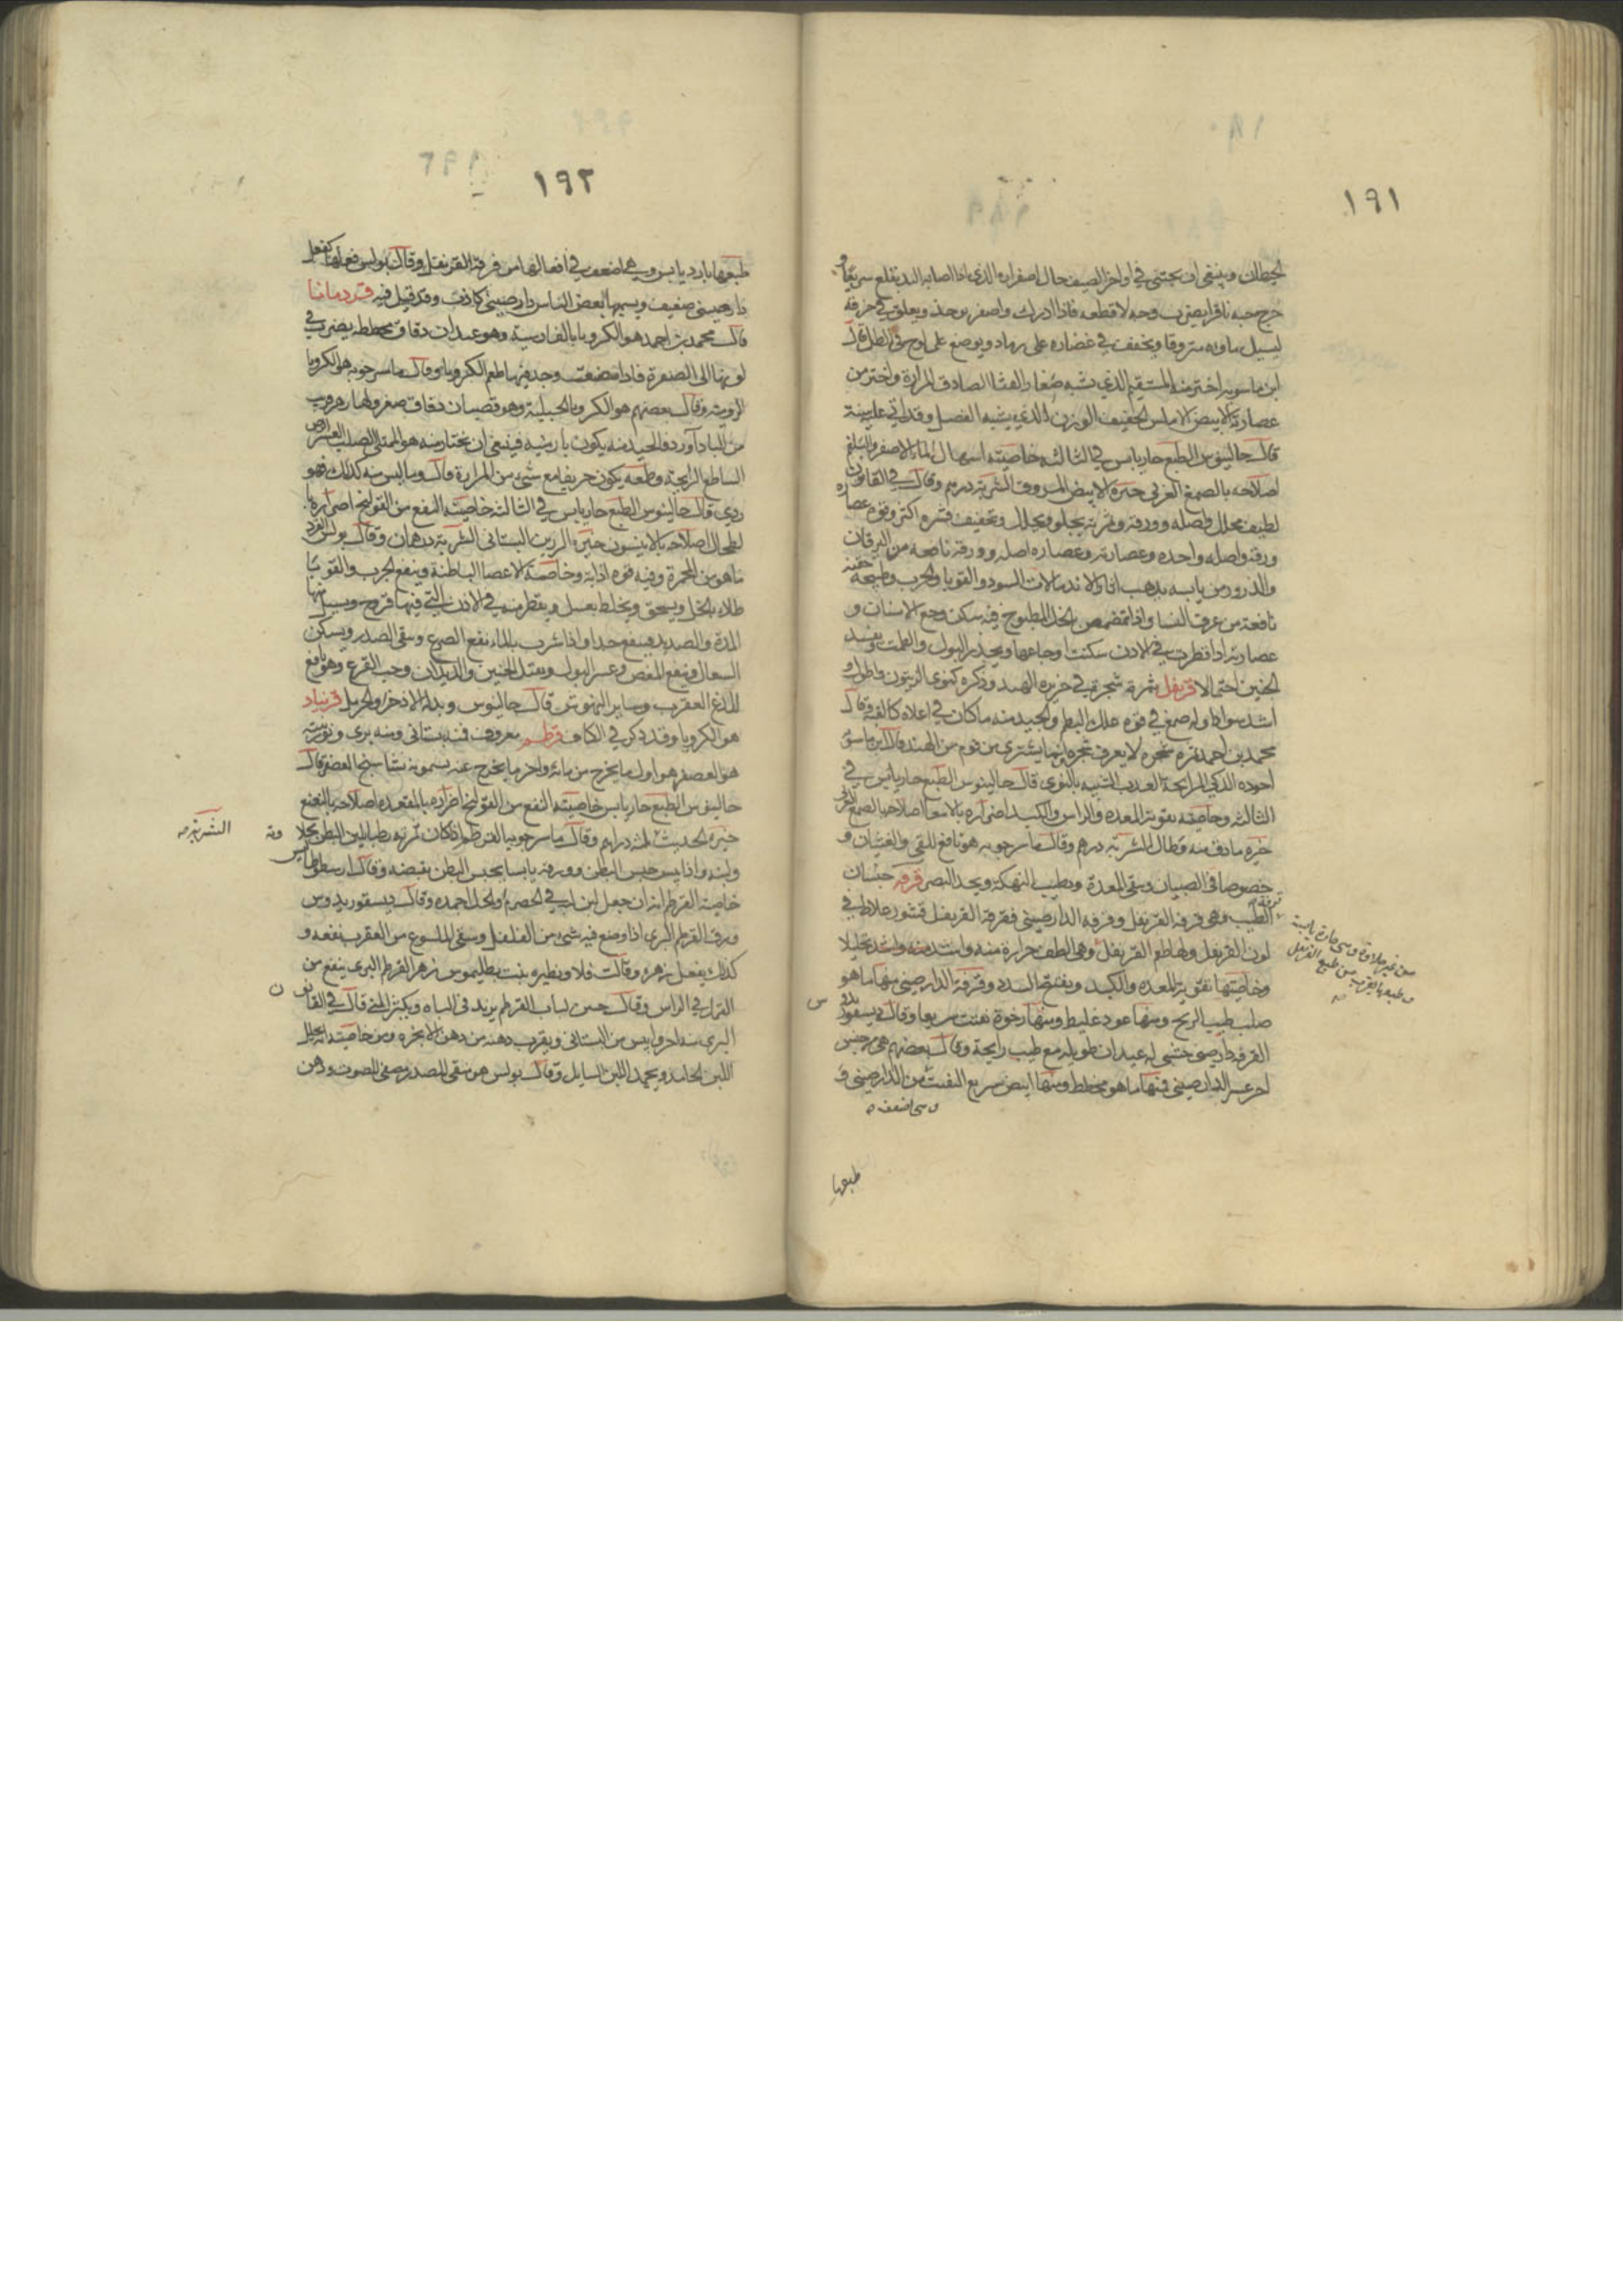 ١٩١
الحيطان وينبغى ان يجتنى فى اواخر الصيف حال اصفراره الذى اذا اصابه اليد يقلع سريعا و
فاذا ادرك واصفر يوخذ ويعلق فى خرقه
ليسيل ماوه متروقا ويجفف فى غضاره على رماد ويوضع على لوح فى الظل قال
ابن ماسويه اختر منه المستقيم الذى يشبه صغار القثا الصادق المرارة واختر من
عصارته الابيض الاملس الخفيف الوزن الذى يشبه
قال جالينوس الطبع حار يابس فى الثالثه خاصيته اسهال الماء الاصفر والبلغم
اصلاحه بالصمغ العربى خيره الابيض المدوف الشربة درهم وقال فى القانون
لطيف محلل واصله وورقه وثمرته يجلو ويحلل ويجفف قشره اكثر وقوة عصاره
ورقه واصله واحده وعصارته وعصاره اصله وورقه ناصحه من اليرقان
والذرور من يابسه يذهب اثار الاندمالات السود والقوبا والجرب وطبيخه حقنه
نافعة من عرق النسا واذا تمضمض بالخل المطبوخ فيه سكن وجع الاسنان و
عصارته اذا قطرت فى الاذن سكنت اوجاعها ويحدر البول والطمث ويفسد
الجنين احتمالا قرنفل ثمرة شجرة فى جزيره الهند وذكره كنوى الزيتون واطول و
اشد سوادا وله صمغ فى قوه علك البطم والجيد منه ما كان فى اعلاه كالفته وقال
محمد بن احمد ثمره شجره لا يعرف شجره انها يشترى من قوم من الهند وقال ابن ماسويه
اجوده الذكى الرايحة العذب الشبيه بالنوى قال جالينوس الطبع حار يابس فى
الثالثه وخاصيته تقوية المعده والراس والكبد اضراره بالامعا اصلاحه بالصمغ العربى
خيره ما دق منه وطال الشربة درهم وقال ماسرجويه هو نافع للقى والغثيان و
خصوصا فى الصبيان ويقى المعدة ويطيب النهكة ويحد البصر قرفه جنسان
الطيب وهى قرفه القرنفل وقرفه الدارصينى فقرفة القرنفل قشور غلاظ فى
لون القرنفل ولها طعم القرنفل وهى الطف حرارة منه واشد منه واشد تحليلا
وخاصيتها تقوية المعده والكبد وتفتح السدد وقرفة الدارصينى منها ما هو
صلب طيب الريح ومنها عود غليظ ومنها رخوة تفتت سريعا وقال ديسقوريدس
القرفه دارصينى خشبى له عيدان طويله مع طيب رايحة وقال بعضهم هى من جنس
اخر غير الدارصينى فمنها ما هو مخطط ومنها ابيض سريع التفتت من الدارصينى و
وهى اضعف
طبعها
من غير حلاوة وهى حارة يابسة
وطبعها يقرب من طبع القرنفل
١٩٢
طبعها بارد يابس وهى اضعف فى افعالها من قرفة القرنفل وقال بولس فعلها كفعل
دارصينى ضعيف ويسميها بعض الناس دارصينى كاذب وقد قيل فيه قردمانا
قال محمد بن احمد هو الكرويا بالفارسية وهو عيدان دقاق مخططه يضرب فى
لونها الى الصفرة فاذا مضغت وجد فيها طعم الكرويا وقال ماسرجويه هو الكرويا
الروميه وقال بعضهم هو الكرويا الجبلية وهو قضبان دقاق صغر
فينبغى ان يختار منه هو الممتلى الصلب العسر الرض
الساطع الرايحة وطعمه يكون حريفا مع شئ من المرارة قال وما ليس منه كذلك فهو
ردى قال جالينوس الطبع حار يابس فى الثالثه خاصيته النفع من القولنج اضراره
لطحال اصلاحه بالانيسون خيره الرزين البستانى الشربة درهمان وقال بولس القرد
مانا هو من المحمرة وفيه قوه اذابة وخاصة للاعضا الباطنة وينفع الجرب والقوبا
طلاء بالخل ويسحق ويخلط بعسل ويقطر منه فى الاذن التى فيها قروح ويسيل منها
المدة والصديد فينفع جدا واذا شرب بالماء نفع الصرع وينقى الصدر ويسكن
السعال وينفع المغص وعسر البول ويقتل الجنين والديدان وحب القرع وهو نافع
للدغ العقرب وساير النهوش قال جالينوس وبدله الاذخر والحرمل قرنباد
هو الكرويا وقد ذكر فى الكاف قرطم معروف فمنه بستانى ومنه برى
هو العصفر هو اول ما يخرج من مائه واخر ما يخرج عنه يسمونه نشاستج العصفر قال
جالينوس الطبع حار يابس خاصيته النفع من القولنج اضراره بالمعده اصلاحه بالنعنع
خيره الحديث ثلثه دراهم وقال ماسرجويه القرطم اذا كان ثمرته رطبا يلين البطن بحلا وة
الشربة
ولينه واذا يبس حبس البطن وورقه يابسا يحبس البطن بقبضه وقال ارسطوطاليس
خاصية القرطم انه ان جعل لبن الحصر والخل اجمده وقال ديسقوريدوس
ورق القرطم البرى اذا وضع فيه شئ من الفلفل وسقى الملسوع من العقرب نفعه و
كذلك يفعل زهره وقالت فلاونظيره بنت بطليموس زهر القرطم البرى ينفع من
القراع فى الراس وقال حنين لباب القرطم يزيد فى الباه ويكثر المنى قال فى القانو ن
البرى منه احر وايبس من البستانى ويقرب دهنه من دهن الانجره ومن خاصيته انه يحلل
اللبن الجامد ويجمد اللبن السايل وقال بولس هو منقى للصدر مصفى للصوت ودهن